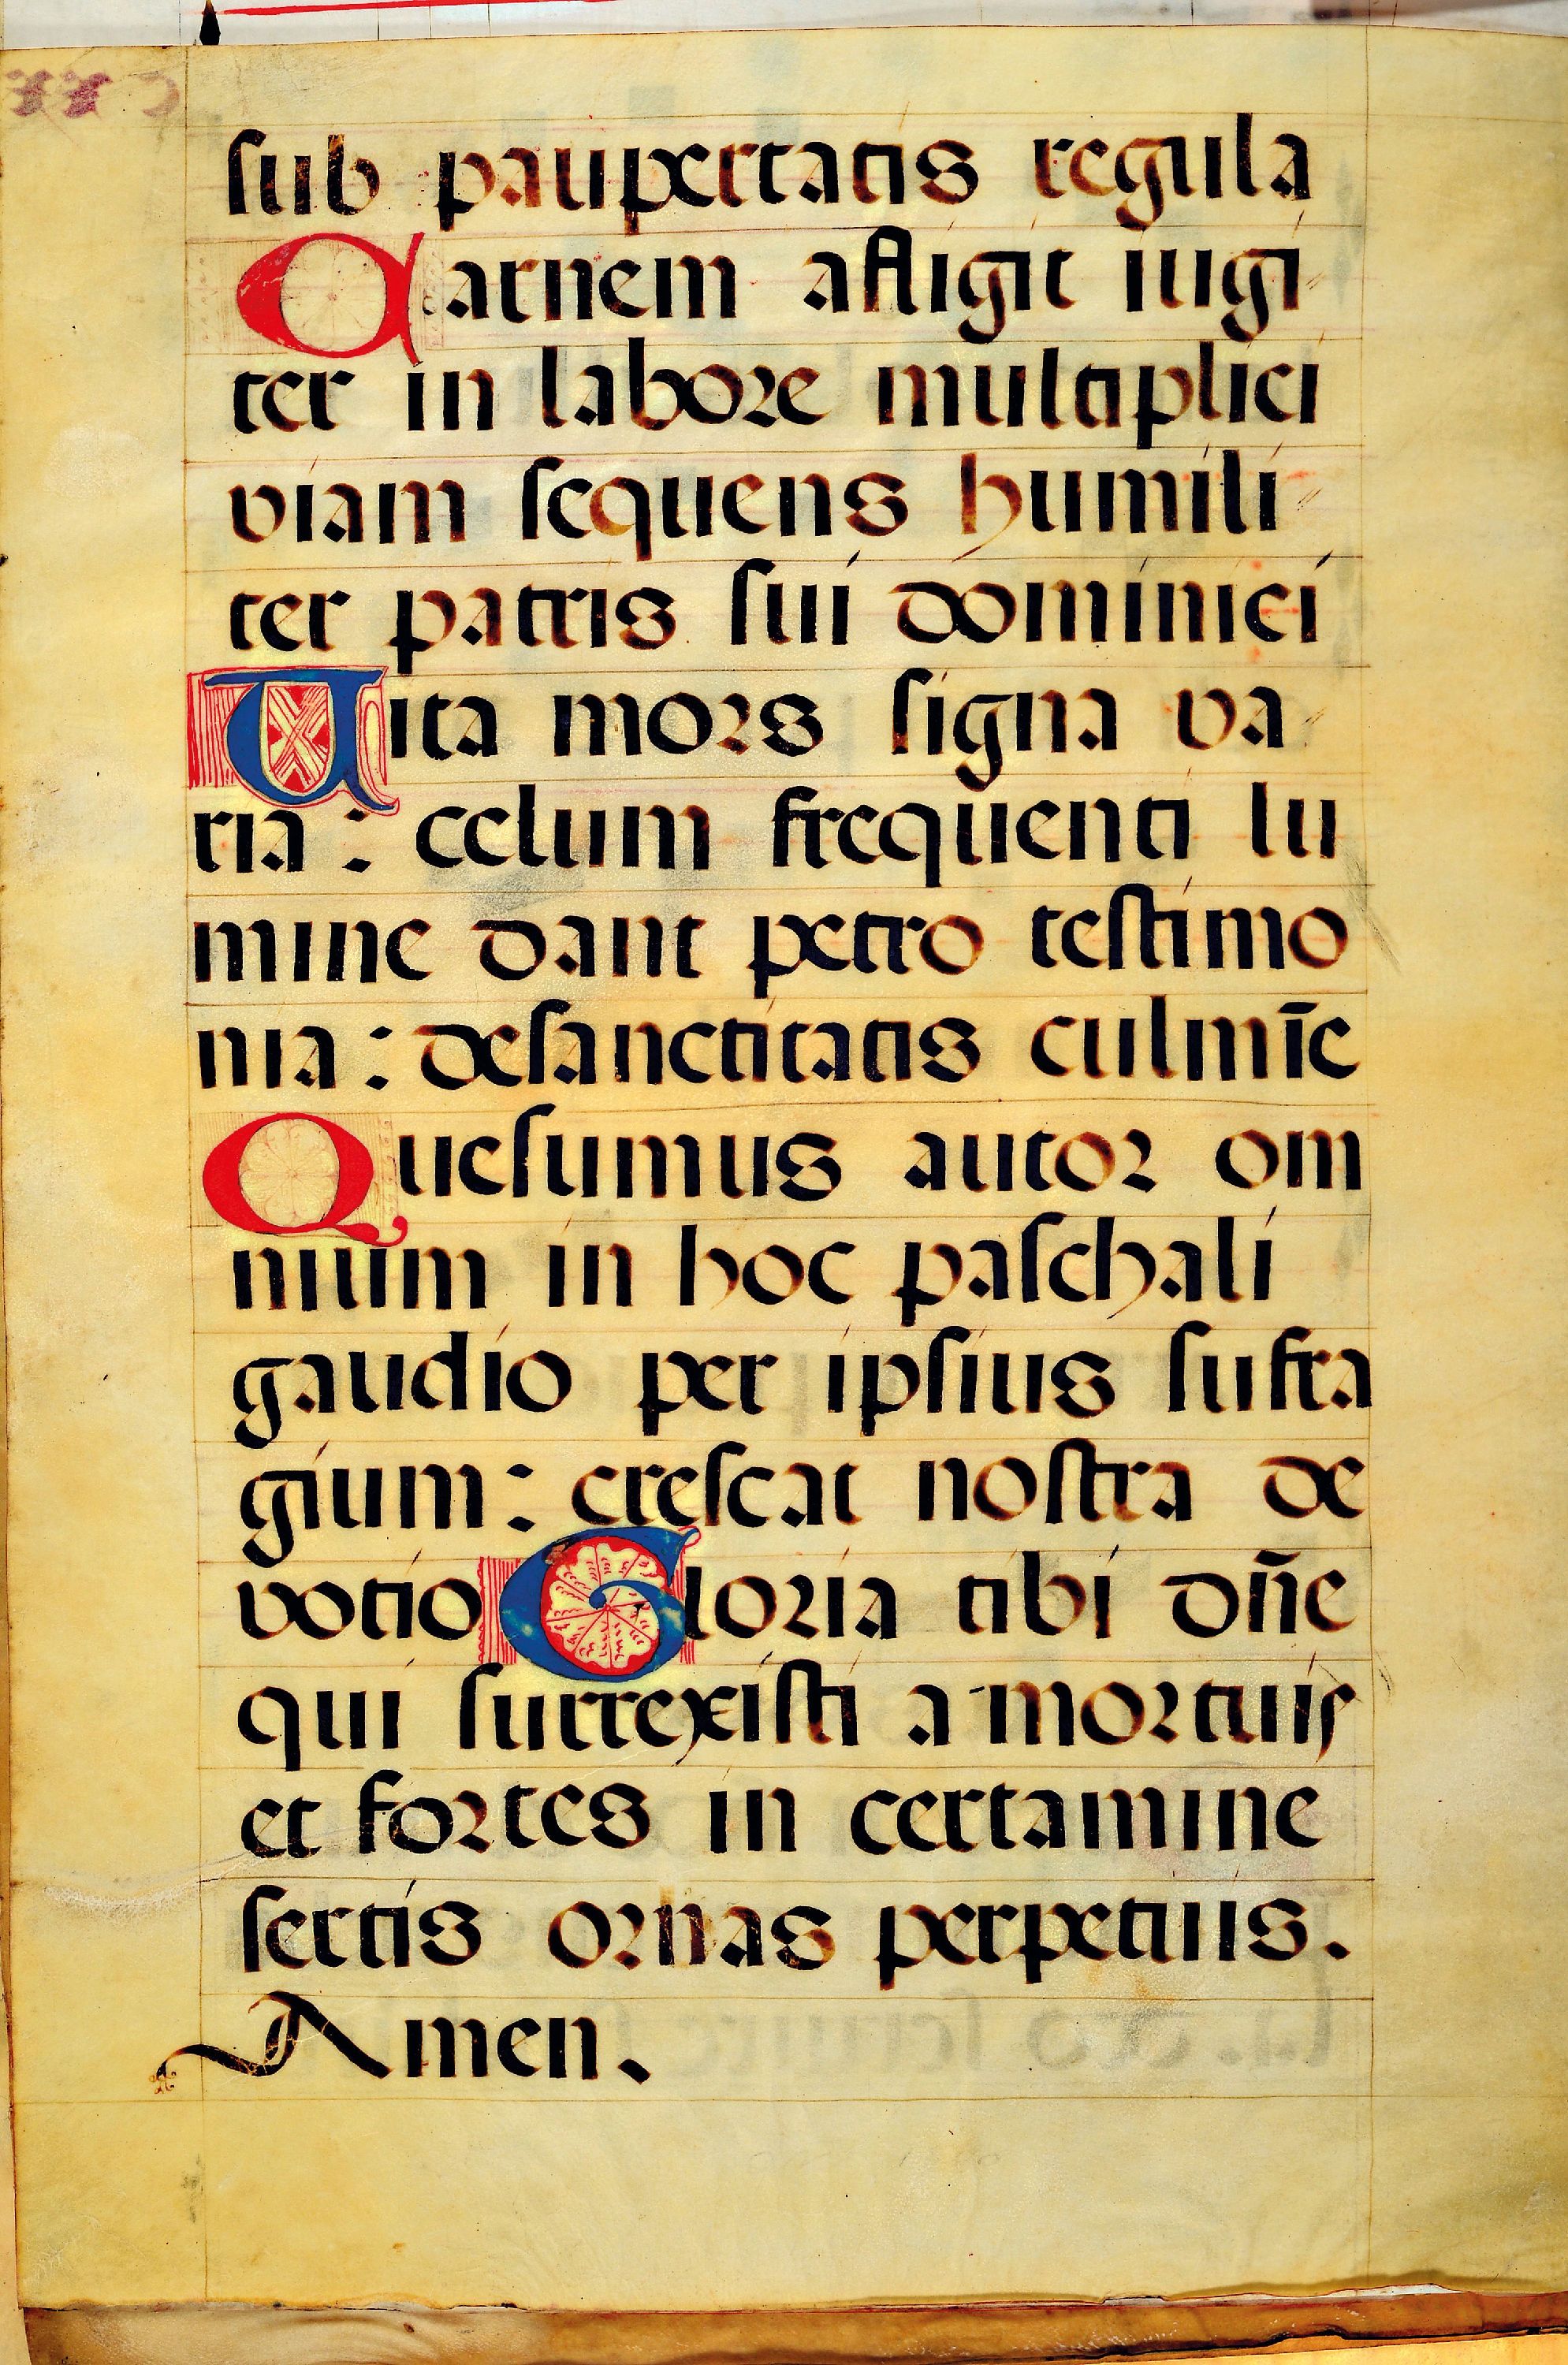 sub paupertatis regula
Carnem afligit iugi
ter in labore multiplici
viam sequens humili
ter patris sui dominici
Uita mors signa va
ria: celum frequenti lu
mine dant petro testimo
nia: desanctitatis culmīe
Quesumus autor om
nium in hoc paschali
gaudio per ipsius sufra
gium: crescat nostra de
votio Gloria tibi dn̄e
qui surrexisti a mortuis
et fortes in certamine
sertis ornas perpetuis.
Amen.